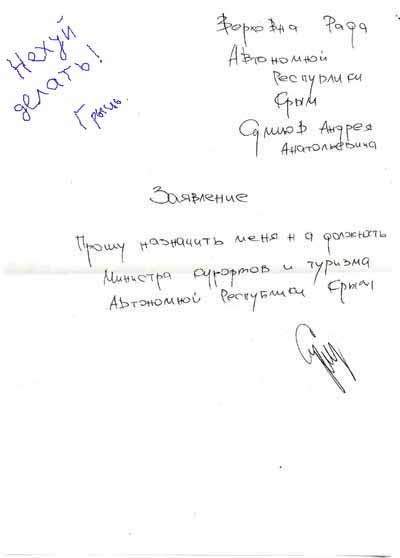 Нехуй
делать!
Грынь.
Верховна Рада
Автономной
Республики
Крым
Андрея
Анатольевича
Заявление
Прошу назначить меня на должность
Министра курортов и туризма
Автономной Республики Крым